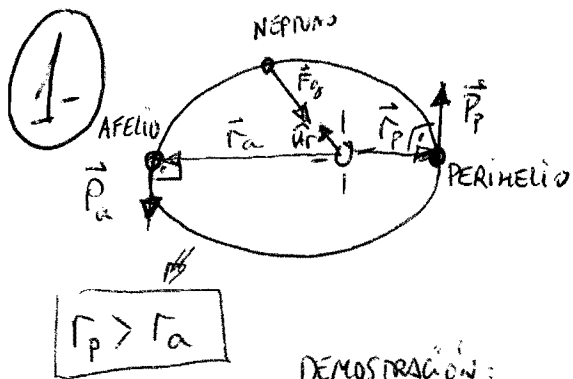 1-
NEPTUNO
F⃗g
AFELIO
r⃗a
u⃗r
r⃗p
P⃗p
PERIHELIO
P⃗a
rp > ra
DEMOSTRACIÓN: